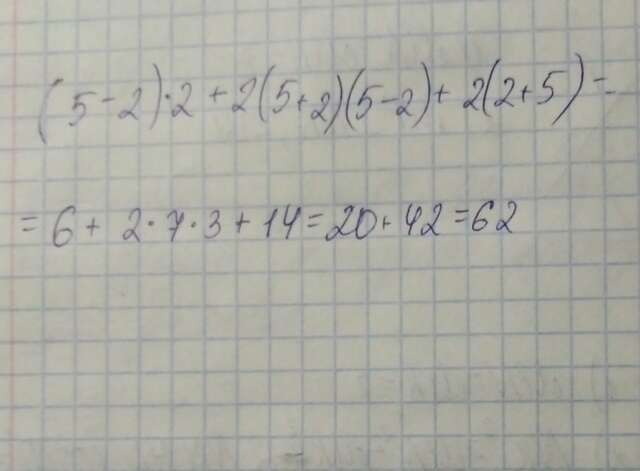 (5-2)·2+2(5+2)(5-2)+2(2+5)=
=6+2·7·3+14=20+42=62